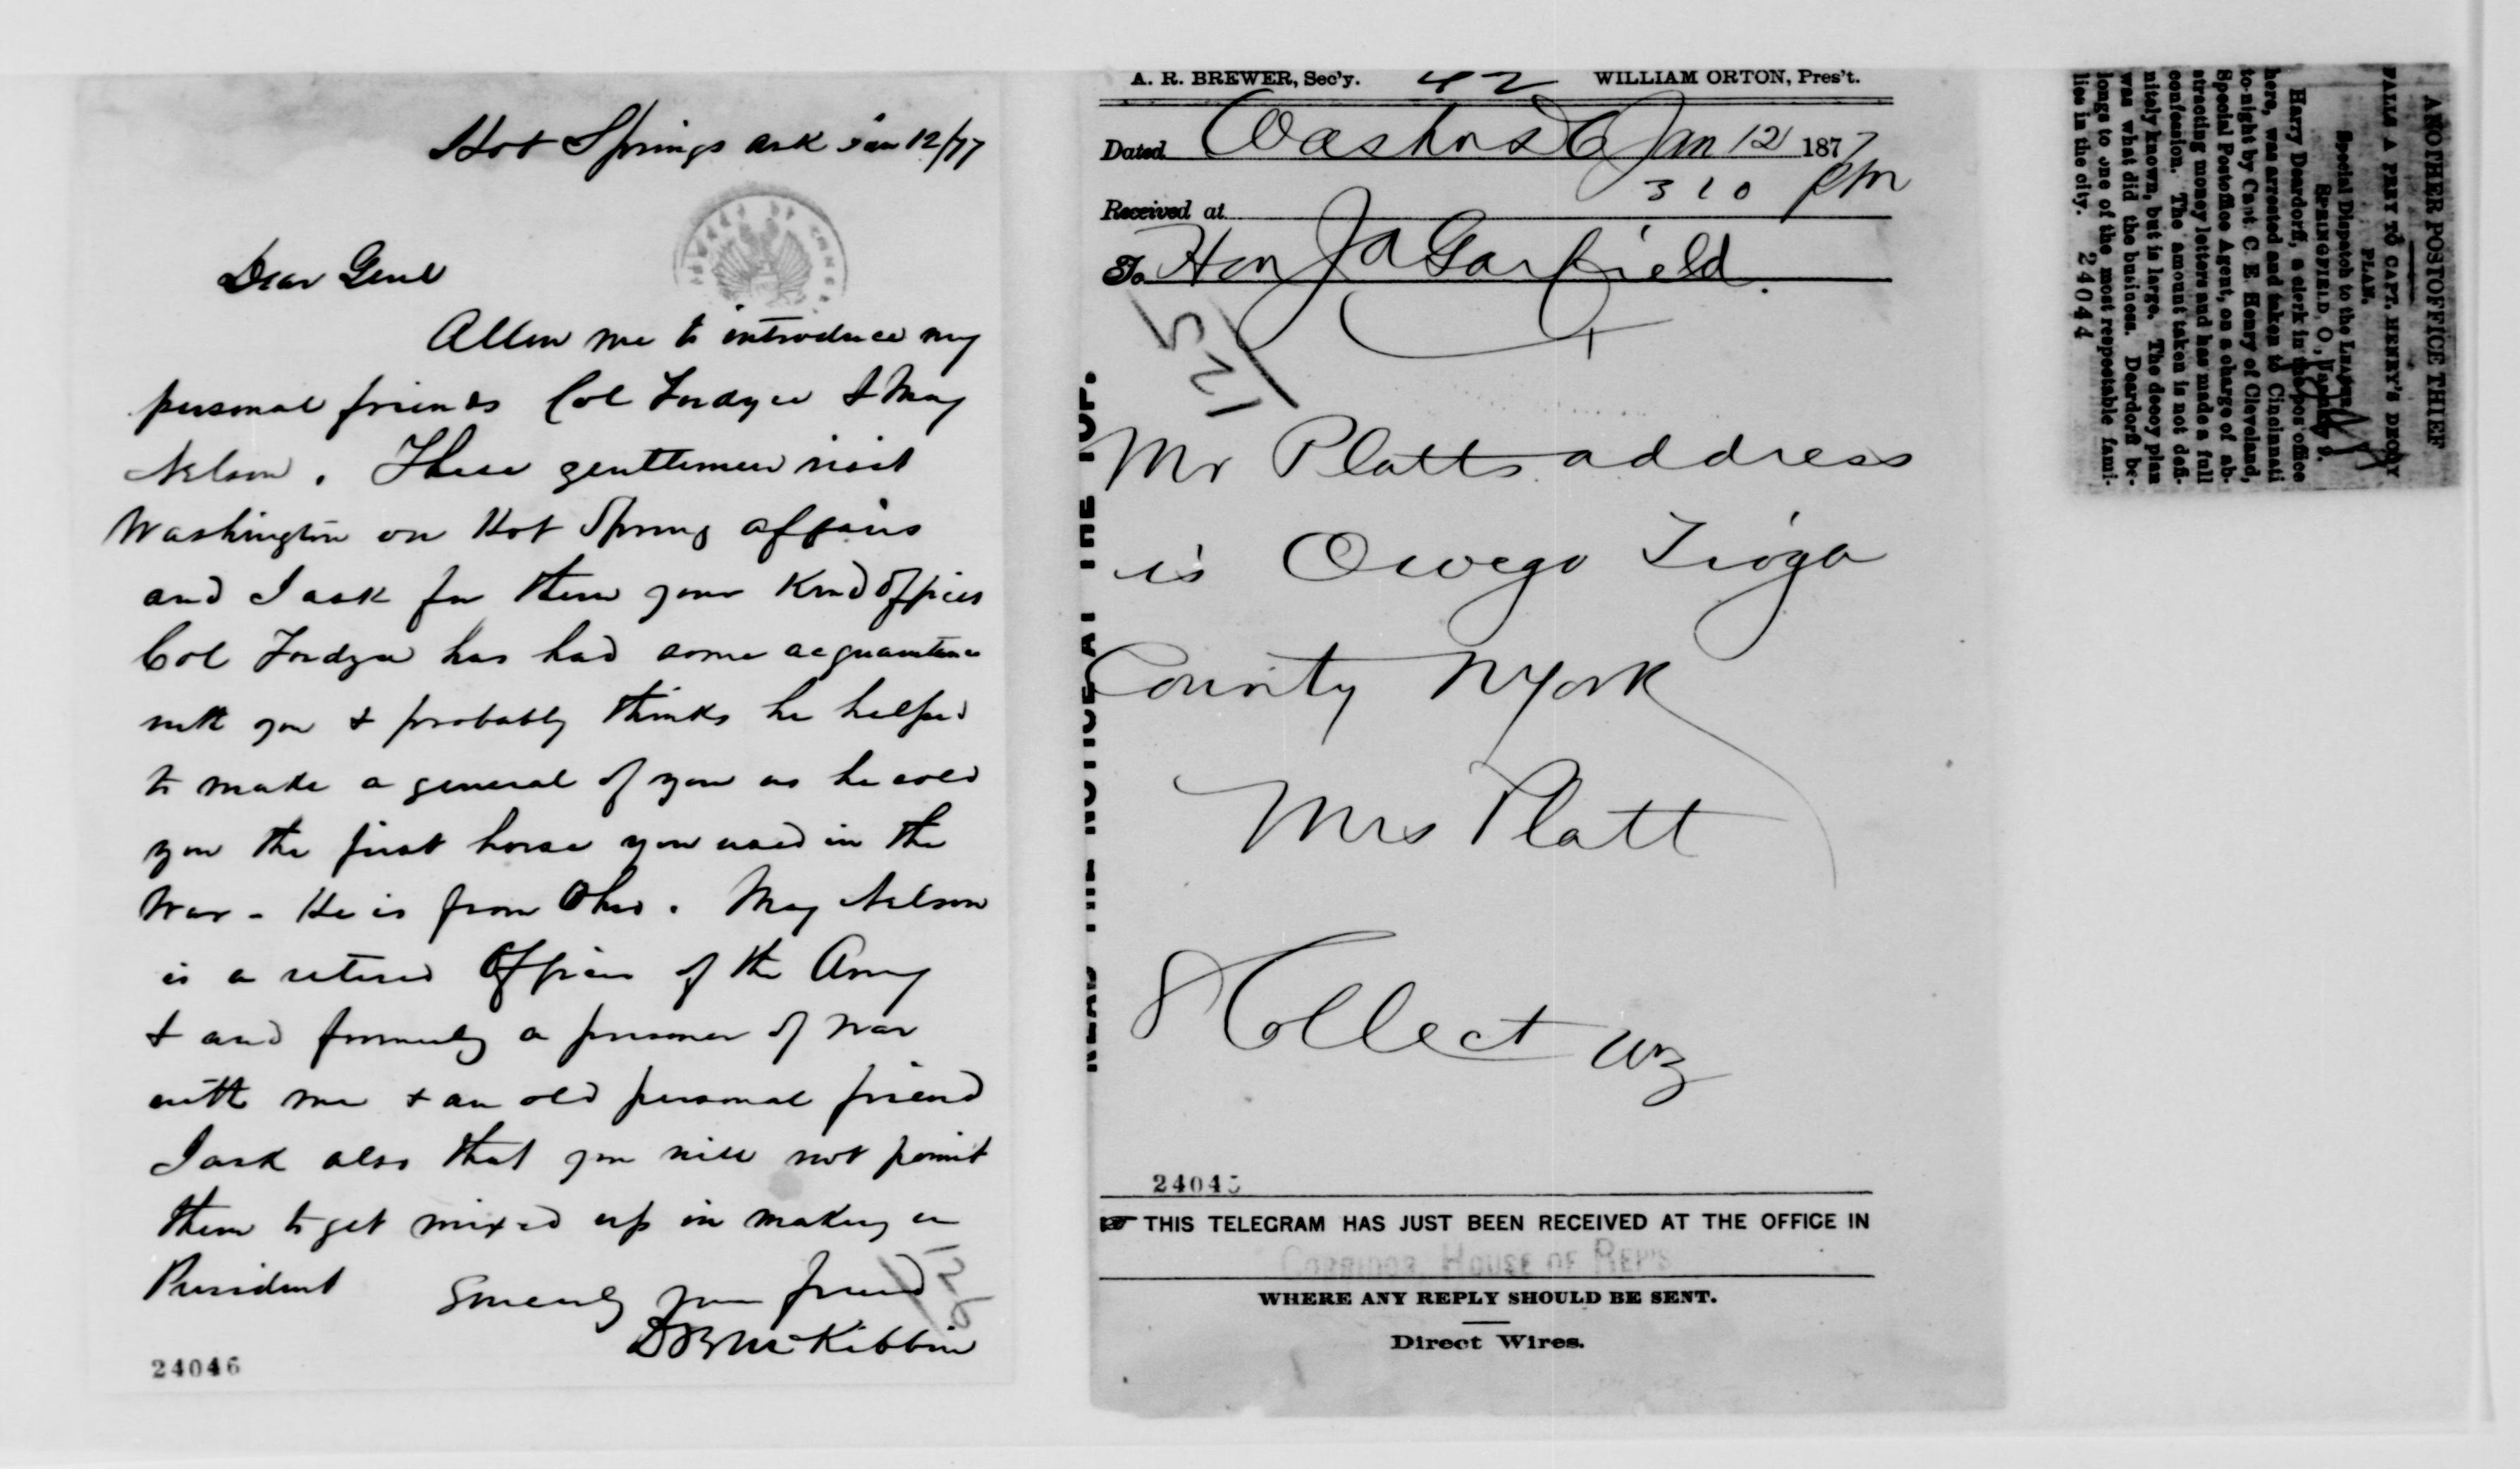 Hot Springs Ark Jan 12/77
Dear Genl
Allow me to introduce my
personal friends Col Fordyce & Maj
Nelson. These gentlemen visit
Washington on Hot Spring affairs
and I ask for them your kind offices
Col Fordyce has had some acquaintance
with you & probably thinks he helped
to make a general of you as he sold
you the first horse you used in the
War - He is from Ohio. Maj Nelson
is a retired Officer of the Army
& and formerly a prisoner of war
with me & an old personal friend
I ask also that you will not permit
them to get mixed up in making a
President
Sincerely your friend
D B McKibbin
126
24046
A. R. BREWER, Sec'y. 42 WILLIAM ORTON, Pres't.
Dated Washn DC Jan 12 1877
Received at 310 pm
To Hon J A Garfield
125
READ THE NOTICE AT THE TOP.
Mr Platts address
is Owego Tioga
County N York
Mrs Platt
8 Collect
2404
☞ THIS TELEGRAM HAS JUST BEEN RECEIVED AT THE OFFICE IN
CORRIDOR, HOUSE OF REP'S
WHERE ANY REPLY SHOULD BE SENT.
Direct Wires.
ANOTHER POSTOFFICE THIEF
FALLS A PREY TO CAPT. HENRY'S DECOY
PLAN.
Special Dispatch to the Leader.
SPRINGFIELD, O., January 9.
Harry Deardorff, a clerk in the postoffice
here, was arrested and taken to Cincinnati
to-night by Capt. C. E. Henry of Cleveland,
Special Postoffice Agent, on a charge of ab-
stracting money letters and has made a full
confession. The amount taken is not defi-
nitely known, but is large. The decoy plan
was what did the business. Deardorff be-
longs to one of the most respectable fami-
lies in the city.
24044